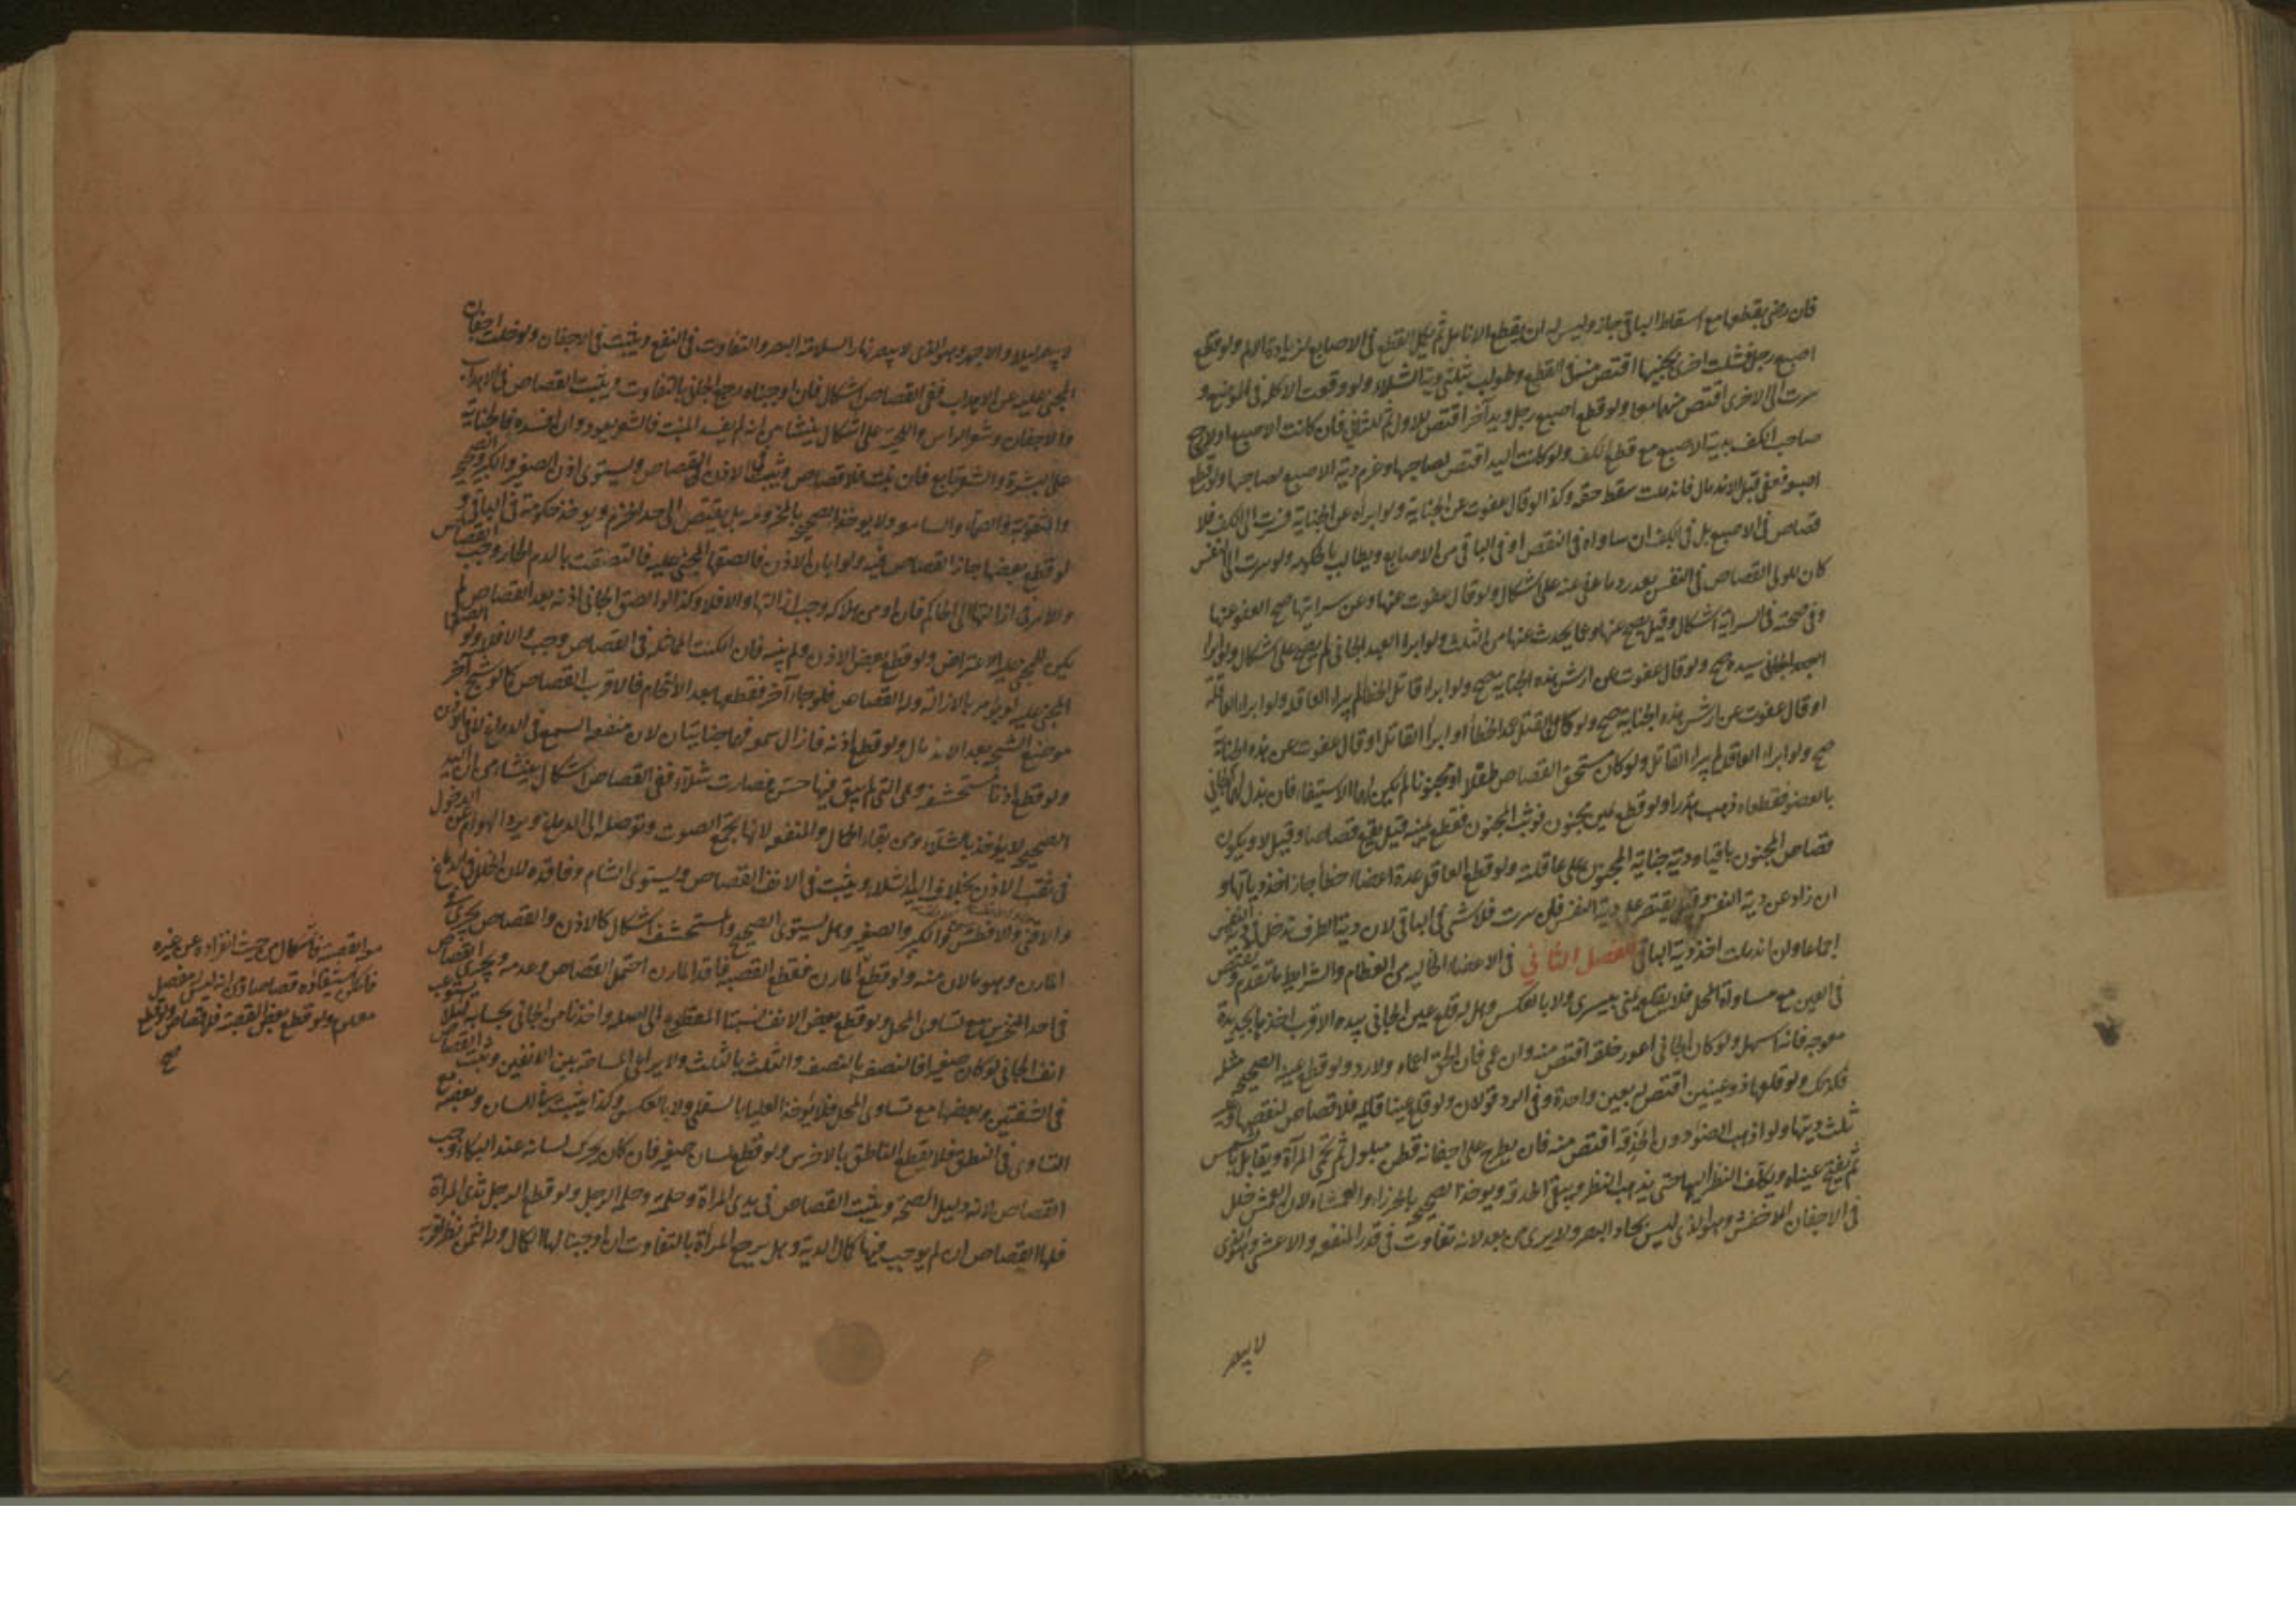 فان رضى بقطعها مع اسقاط الباقى جاز وليس له ان يقطع الانامل ثم يكمل القطع فى الاصابع لزيادة الالم ولو قطع
اصبع رجل فشلت اخرى بجنبها اقتص منه فى القطع وطولب بثلثى دية الشلاء ولو وقعت الاكلة فى الموضع و
سرت الى الاخرى اقتص منهما معا ولو قطع اصبع رجل ويد آخر اقتص للاول ثم للثانى فان كانت الاصبع اولا رجع
صاحب الكف بدية الاصبع مع قطع الكف ولو كانت اليد اقتص لصاحبها وغرم دية الاصبع لصاحبها ولو قطع
اصبعه فعفى قبل الاندمال فاندملت سقط حقه وكذا لو قال عفوت عن الجناية ولو ابراه عن الجناية فسرت الى الكف فلا
قصاص فى الاصبع بل فى الكف ان ساواه فى النقص او فى الباقى من الاصابع ويطالب بالحكومه ولو سرت الى النفس
كان للولى القصاص فى النفس بعد رد ما عفى عنه على اشكال ولو قال عفوت عنها وعن سرايتها صح العفو عنها
وفى صحته فى السراية اشكال وقيل يصح عنها وعما يحدث عنها من الثلث ولو ابرا العبد الجانى لم يصح على اشكال ولو ابرا
السيد صح ولو قال عفوت عن ارش هذه الجناية صح ولو ابرا قاتل الخطا لم يبرا العاقله ولو ابرا العاقلة
او قال عفوت عن ارش هذه الجناية صح ولو كان القتل عمد الخطا او ابرا القاتل او قال عفوت عن هذه الجناية
صح ولو ابرا العاقلة لم يبرا القاتل ولو كان مستحق القصاص طفلا او مجنونا لم يكن لهما الاستيفاء فان بذل لهما الجانى
بالعضو فقطعاه ذهب هدرا ولو قطع يمين مجنون فوثب المجنون فقطع يمينه قيل يقع قصاصا وقيل لا ويكون
قصاص المجنون باقيا ودية جناية المجنون على عاقلته ولو قطع العاقل عدة اعضاء خطأ جاز اخذ دياتها و
ان زاد عن دية النفس وقيل يقتصر على دية النفس فان سرت فلا شى فى الباقى لان دية الطرف تدخل فى دية النفس
اجماعا وان اندملت اخذ دية الباقى الفصل الثانى فى الاعضاء الخاليه من العظام والشرايط ما تقدم ويقتص
فى العين مع مساواة المحل فلا يقلع يمنى بيسرى ولا بالعكس وهل له قلع عين الجانى بيده الاقرب اخذها بحديدة
معوجه فانه اسهل ولو كان الجانى اعور خلقة اقتص منه وان عمى فان الحق اعماه ولا رد ولو قلع عينه الصحيحه مثله
فكذلك ولو قلعها ذو عينين اقتص له بعين واحدة وفى الرد قولان ولو قلع عينا قائمه فلا قصاص لنقصها وعليه
ثلث ديتها ولو اذهب الضوء دون الحدقة اقتص منه فان يطرح على اجفانه قطن مبلول ثم تحمى المرآة ويقابل بالشمس
ثم يفتح عيناه ويكلف النظر اليها حتى يذهب النظر ويبقى الحدقه ويوخذ الصحيحه بالجهراء والعمشاء لان العمش خلل
فى الاجفان الاخفش وهو الذى ليس بحاد البصر ولا يرى من بعد لانه تفاوت فى قدر المنفعه والاعشى وهو الذى
لا يبصر
لا يبصر ليلا والاجهر وهو الذى لا يبصر نهارا لسلامة البصر والتفاوت فى النفع ويثبت فى الاجفان ولو خلت اجفان
المجنى عليه عن الاهداب ففى القصاص اشكال فان اوجبناه رجع الجانى بالتفاوت ويثبت القصاص فى الاهداب
والاجفان وشعر الراس واللحية على اشكال ينشا من انه لم يفسد المنبت فالشعر يعود وان افسده فالجناية
على البشرة والشعر تابع فان نبت فلا قصاص ويثبت فى الاذن القصاص ويستوى اذن الصغير والكبير والصحيح
والمثقوبة والصماء والسامعه ولا يوخذ الصحيح بالمخرومه بل يقتص الى حد الخرم ويوخذ حكومة فى الباقى و
لو قطع بعضها جاز القصاص فيه ولو ابان الاذن فالصقها المجنى عليه فالتصقت بالدم الحار وجب القصاص
والامر فى ازالتها الى الحاكم فان امن هلاكه وجب ازالتها والا فلا وكذا لو الصق الجانى اذنه بعد القصاص لم
يكن للمجنى عليه الاعتراض ولو قطع بعض الاذن ولم يبنه فان امكنت المماثلة فى القصاص وجب والا فلا ولو الصقها
المجنى عليه لم يومر بالازالة وله القصاص فلو جاء آخر فقطعها بعد الالتحام فالاقرب القصاص كما لو شج آخر
موضع الشجه بعد الاندمال ولو قطع اذنه فازال سمعه فهما جنايتان لان منفعة السمع فى الدماغ لا فى الاذن
ولو قطع اذنا مستحشفه وهى التى لم يبق فيها حس وصارت شلاء ففى القصاص اشكال ينشا من ان اليد
الصحيحه لا يوخذ بالشلاء ومن بقاء الجمال والمنفعه لانها تجمع الصوت وتوصله الى الدماغ ويرد الهوام عن الدخول
فى ثقب الاذن بخلاف اليد الشلا ويثبت فى الانف القصاص ويستوى الشام وفاقده لان الخلل فى الدماغ
والاقنى والافطس والكبير والصغير وهل يستوى الصحيح والمستحشف اشكال كالاذن والقصاص يجرى فى
المارن وهو ما لان منه ولو قطع المارن فقطع القصبة فاقد المارن احتمل القصاص وعدمه ويجرى القصاص
فى احد المنخرين مع تساوى المحل ولو قطع بعض الانف نسبنا المقطوع الى اصله واخذنا من الجانى بحسابه لئلا يستوعب
انف الجانى لو كان صغيرا فالنصف بالنصف والثلث بالثلث ولا يراعى المساحة بين الانفين ويثبت القصاص
فى الشفتين وبعضها مع تساوى المحل فلا يؤخذ العليا بالسفلى ولا بالعكس وكذا يثبت فى اللسان وبعضه مع
التساوى فى النطق فلا يقطع الناطق بالاخرس ولو قطع لسان صغير فان كان يحرك لسانه عند البكاء وجب
القصاص لانه دليل الصحة ويثبت القصاص فى ثدى المراة وحلمته وحلمة الرجل ولو قطع الرجل ثدى المراة
فلها القصاص ان لم يوجب فيها كمال الدية وهل يرجع المراة بالتفاوت ان اوجبنا لها الكمال وله الثمن نظر اقربه
مع القصبة فاشكال من حيث انفراده عن غيره
فامكن استيفاؤه قصاصا ومن انه ليس له مفصل
معلوم ولو قطع بعض القصبة فلا قصاص ولو قطع
صح